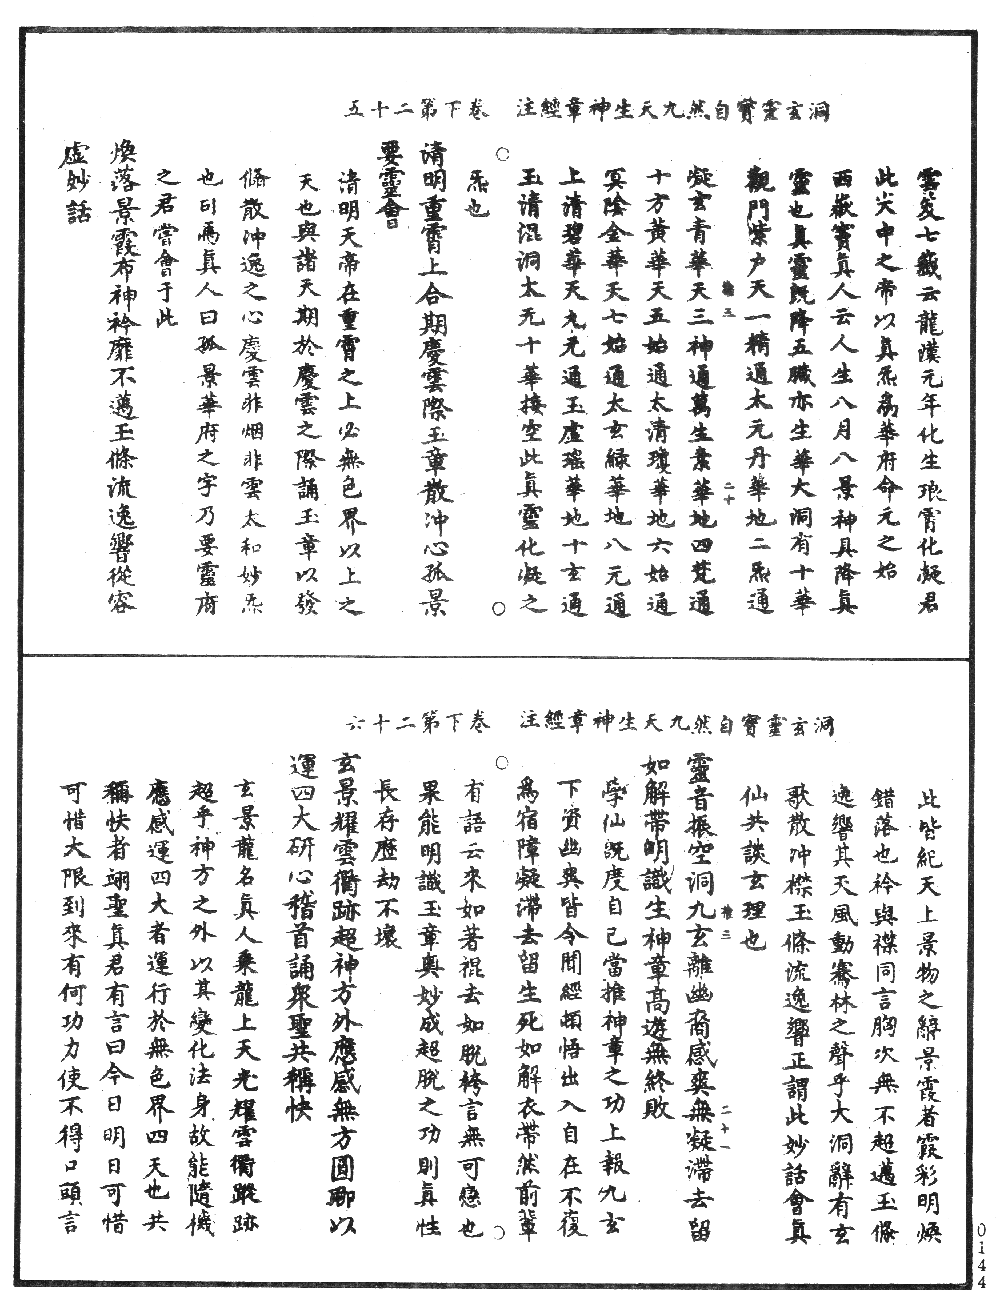 洞玄靈寶自然九天生神章經注　卷下第二十五
雲笈七籤云龍漢元年化生琅霄化凝君
此天中之帝以真炁爲華府命元之始
西嶽竇真人云人生八月八景神具降真
靈也真靈既降五臟亦生華大洞有十華
觀門紫户天一精通太元丹華地二炁通
凝玄青華天三神通萬生素華地四梵通
十方黃華天五始通太清瓊華地六始通
冥陰金華天七始通太玄綠華地八元通
上清碧華天九元通玉虛瑤華地十玄通
玉清混洞太无十華接空此真靈化凝之
炁也
清明重霄上合期慶雲際玉章散沖心孤景
要靈會
清明天帝在重霄之上必無色界以上之
天也與諸天期於慶雲之際誦玉章以發
倏散沖逸之心慶雲非烟非雲太和妙炁
也引爲真人曰孤景華府之字乃要靈府
之君嘗會于此
煥落景霞布神衿靡不邁玉條流逸響從容
虛妙話
三
二十
洞玄靈寶自然九天生神章經注　卷下第二十六
此皆紀天上景物之辭景霞者霞彩明煥
錯落也衿與襟同言胸次無不超邁玉條
逸響其天風動騫林之聲乎大洞辭有玄
歌散沖襟玉條流逸響正謂此妙話會真
仙共談玄理也
靈音振空洞九玄離幽裔感爽無凝滯去留
如解帶明識生神章高遊無終敗
學仙既度自己當推神章之功上報九玄
下資幽奧皆令聞經頓悟出入自在不復
爲宿障凝滯去留生死如解衣帶然前輩
有語云來如著裩去如脫袴言無可戀也
果能明識玉章奧妙成超脫之功則真性
長存歷劫不壞
玄景耀雲衢跡超神方外應感無方圓聊以
運四大研心稽首誦眾聖共稱快
玄景龍名真人乘龍上天光耀雲衢蹤跡
超乎神方之外以其變化法身故能隨機
應感運四大者運行於無色界四天也共
稱快者翊聖真君有言曰今日明日可惜
可惜大限到來有何功力使不得口頭言
三
二十一
0144